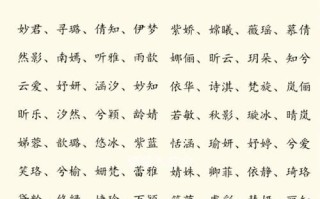 妙君、寻璐、倩知、伊梦 紫娇、嫦曦、薇瑶、慕倩
然影、南嫣、听雅、雨歆 娜俪、昕云、玥朵、知兮
云爱、妤妍、涵汐、妙知 依华、诗淇、梵旋、岚俪
昕乐、汐然、兮颖、龄婧 若敏、秋影、璇冰、晴岚
娣蓉、歆璐、悠冰、紫蓝 恬涵、瑜妍、妤婷、兮爱
笑珞、兮榆、姗梵、蕾雅 婧姝、卿菲、依静、琦珞